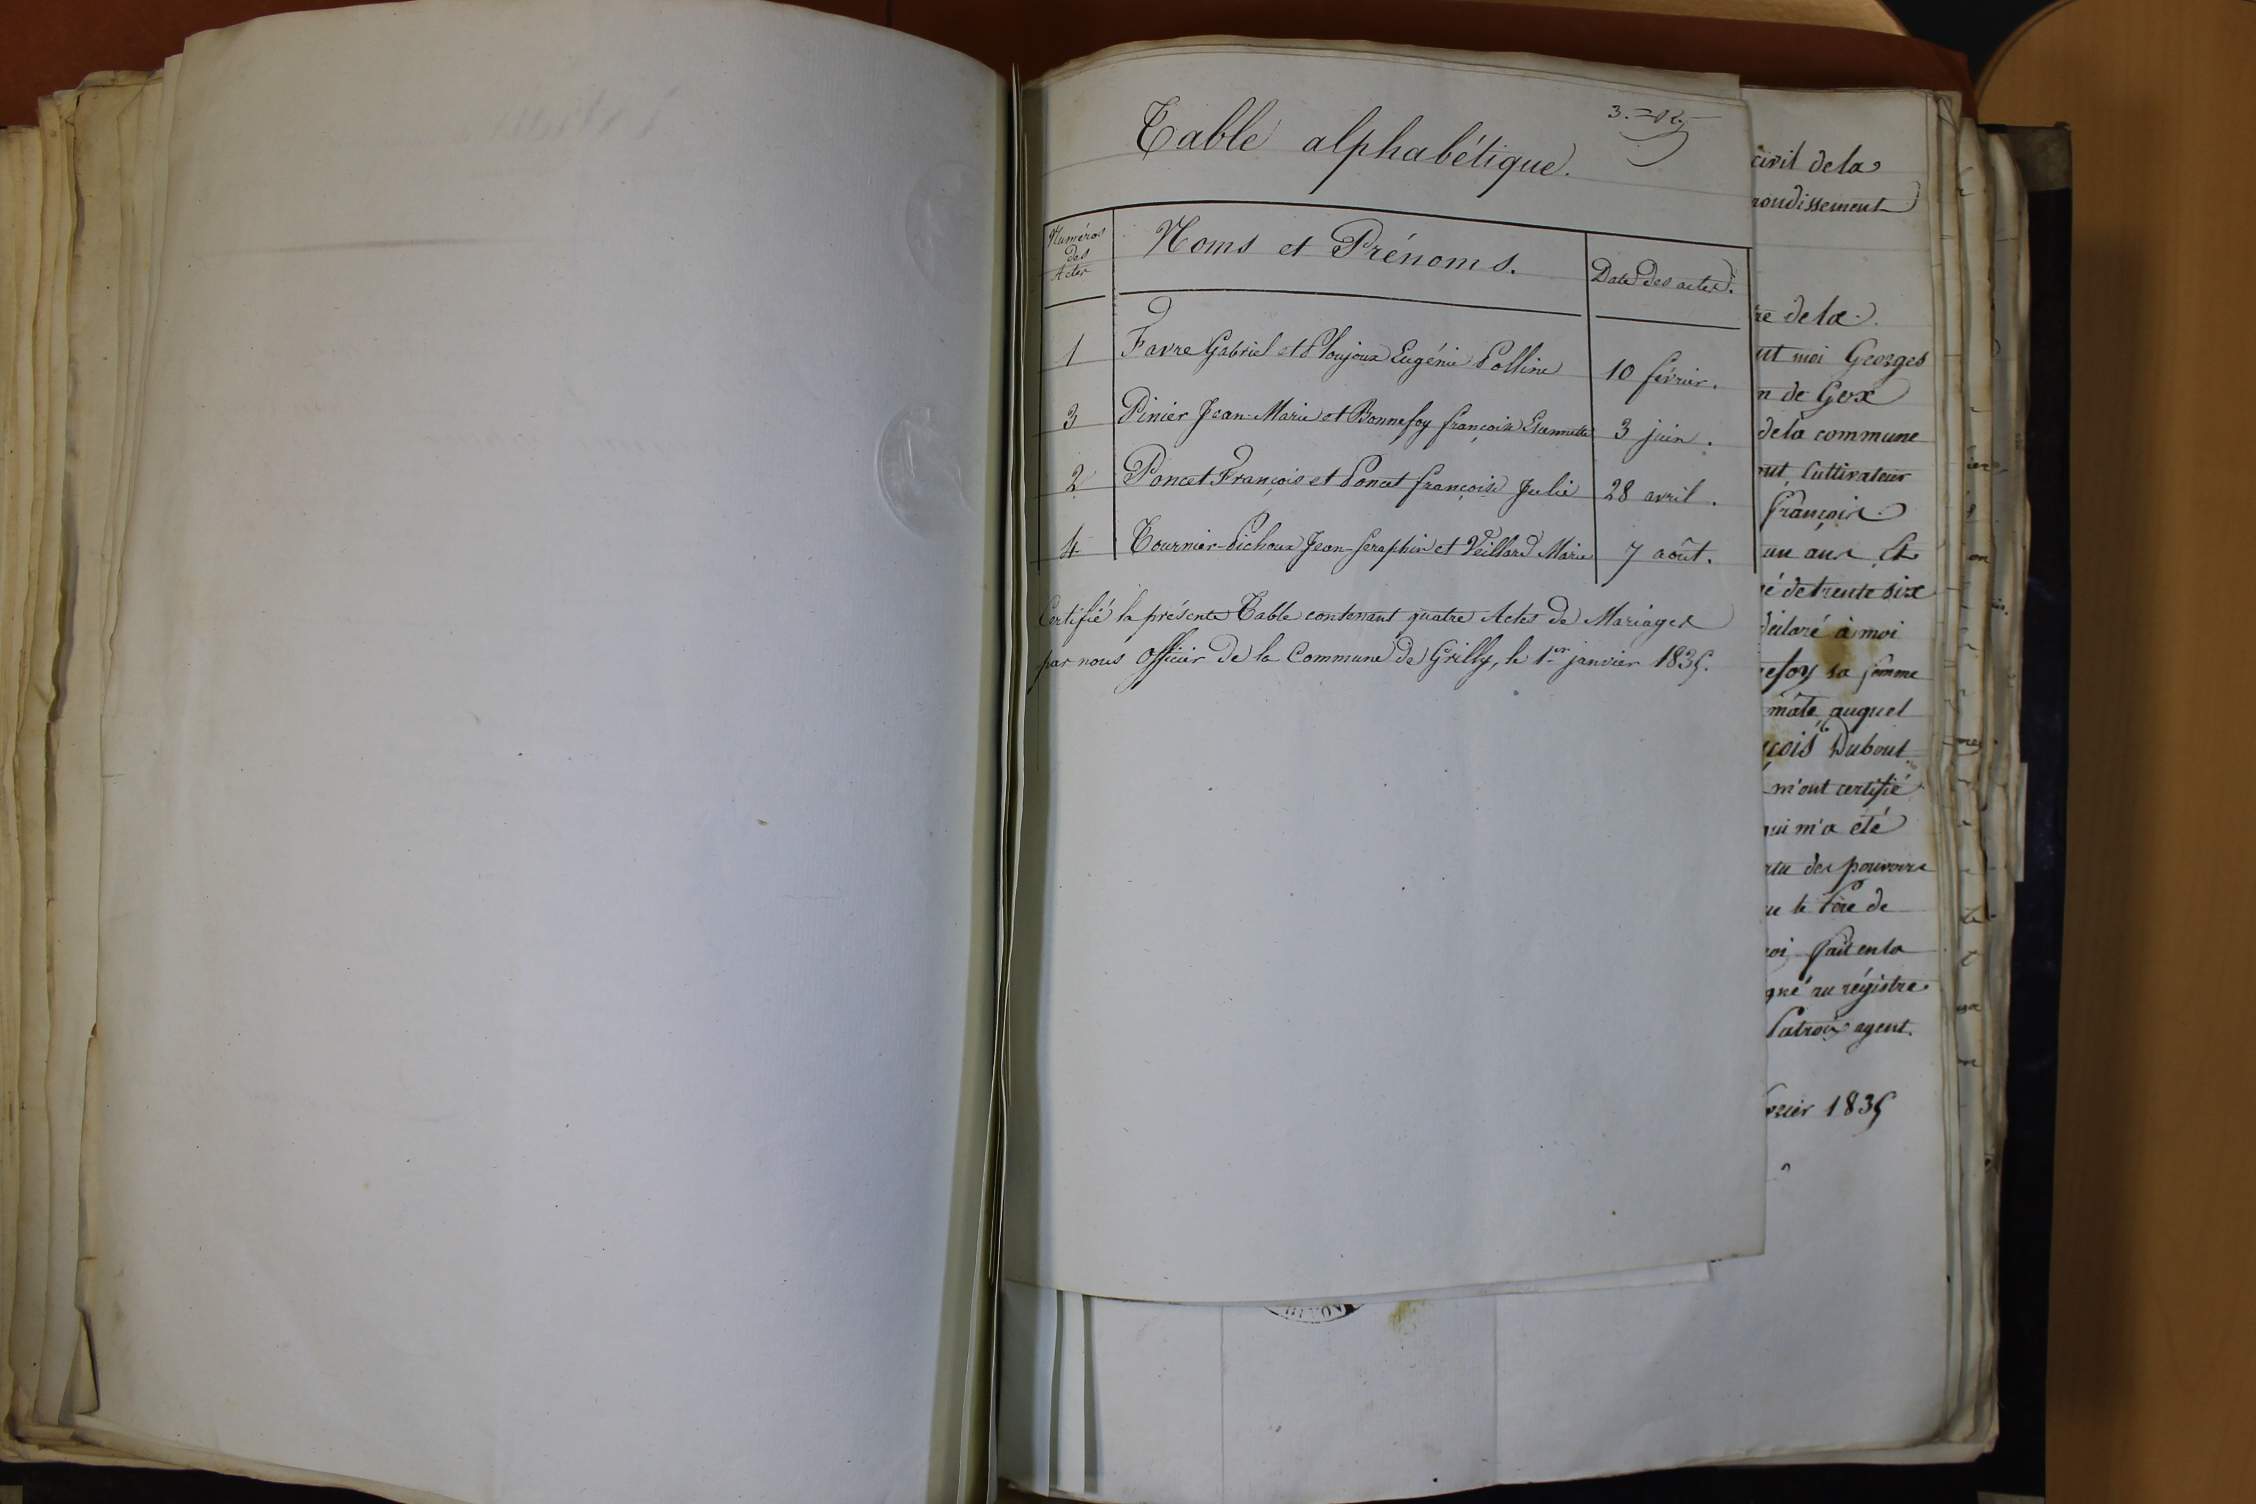 Table alphabétique.
Numéros des Actes
Noms et Prénoms.
Date des actes.
1 Favre Gabriel et Ploujoux Eugénie Polline 10 février.
3 Pinier Jean-Marie et Bonnefoy françoise Etiennette 3 juin.
2 Poncet François et Poncet françoise Julie 28 avril.
4 Tournier-Pichoux Jean-Seraphin et Veillard Marie 7 août.
Certifié la présente Table contenant quatre Actes de Mariages
par nous officier de la Commune de Grilly, le 1er janvier 1835.
civil de la
rondissement
re de la
nt moi Georges
n de Gex
de la commune
out, Cultivateur
françoise
un ans, Et
é de trente six
déclaré à moi
efoy sa femme
mâle, auquel
çois Dubout
m'ont certifié
qui m'a été
rtu des pouvoirs
ue le Père de
moi, fait en la
gné au régistre
Patroix agent.
vrier 1835
DIVON